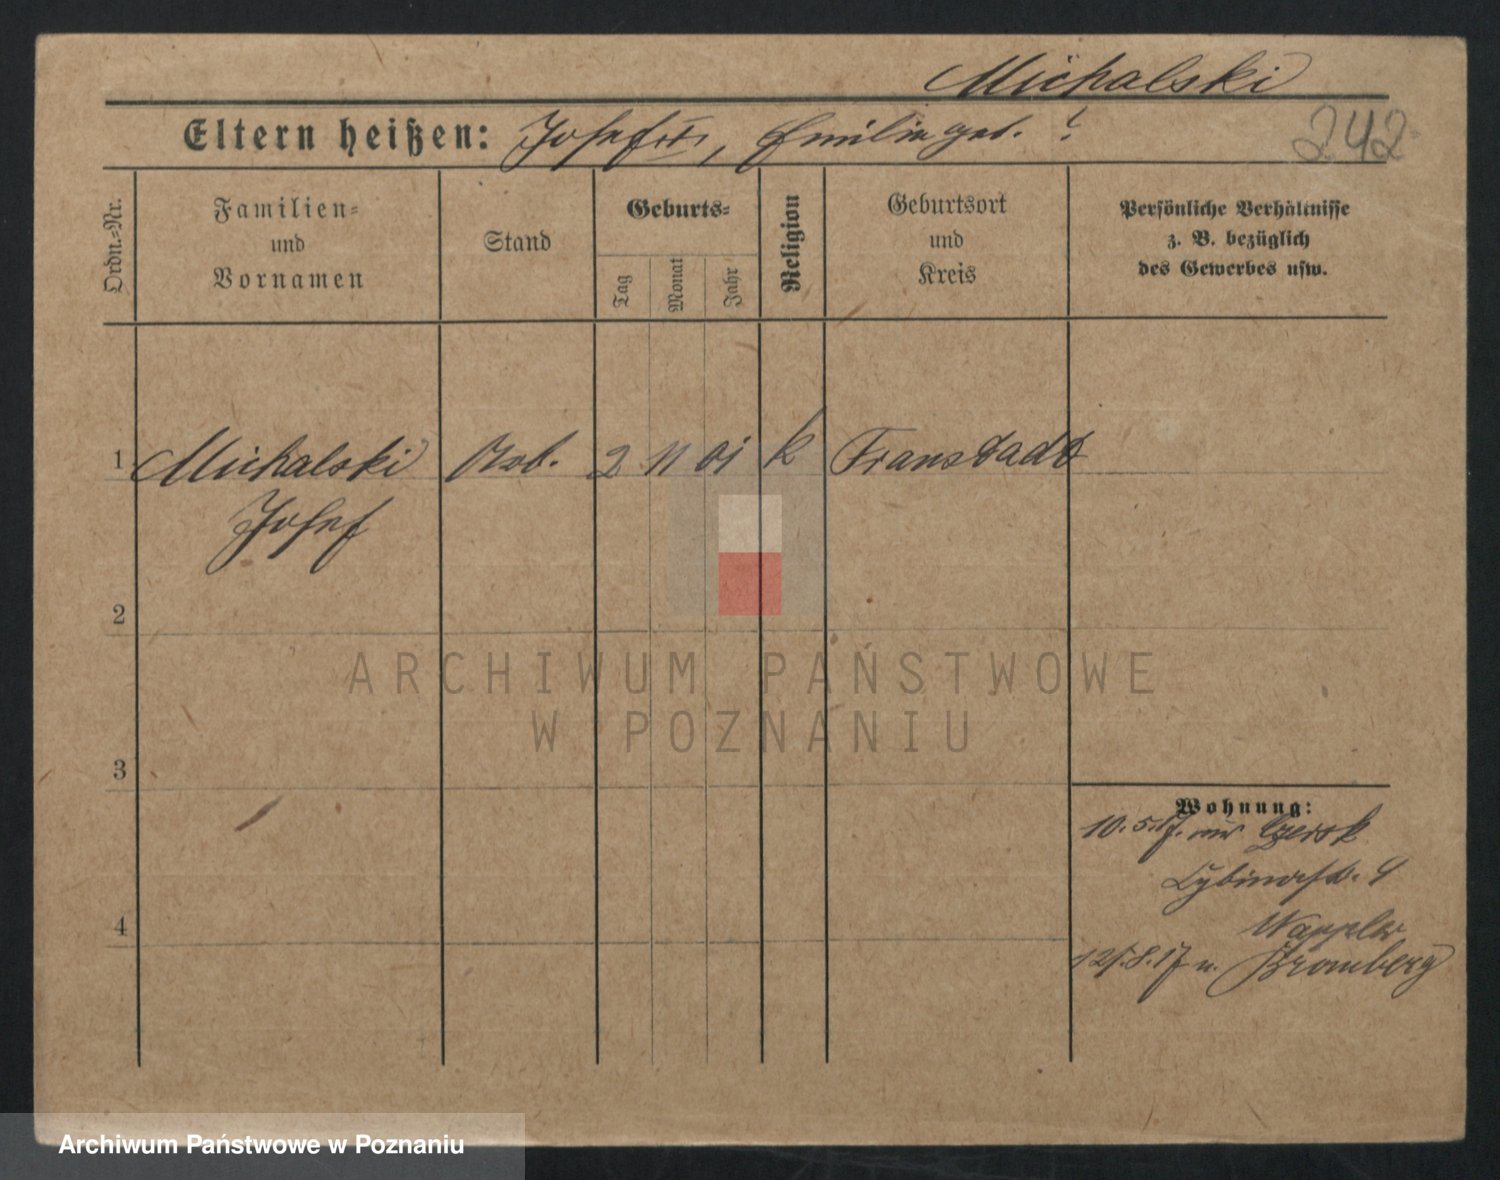 Michalski
Eltern heißen: Josef, Emilie geb. ?
242
Ordn.-Nr.
Familien-
und
Vornamen
Stand
Geburts-
Tag
Monat
Jahr
Religion
Geburtsort
und
Kreis
Persönliche Verhältnisse
z. B. bezüglich
des Gewerbes usw.
1 Michalski Arb. 2 11 01 k Fraustadt
Josef
2
ARCHIWUM PAŃSTWOWE
W POZNANIU
3
Wohnung:
10.5.17. Czersk
Cybinastr. 4
Wappler
4
12/.8.17 n. Bromberg
Archiwum Państwowe w Poznaniu